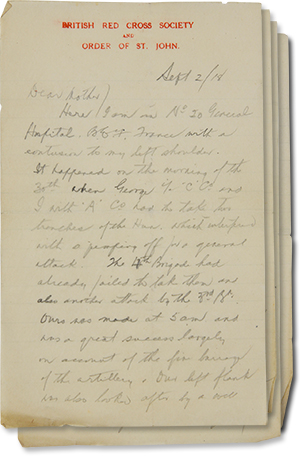 BRITISH RED CROSS SOCIETY
AND
ORDER OF ST. JOHN.
Sept 2/18
Dear Mother,
Here I am in No 20 General
Hospital. B.E.F. France with a
contusion to my left shoulder.
It happened on the morning of the
30th when George in "C" Co and
I with "A" Co had to take two
trenches of the Huns, which interfered
with a jumping off for a general
attack. The 4th Brigade had
already failed to take them and
also another attack by the 3rd Bt.
Ours was made at 5am and
was a great success largely
on account of the fine barrage
of the artillery. Our left flank
was also looked after by a well